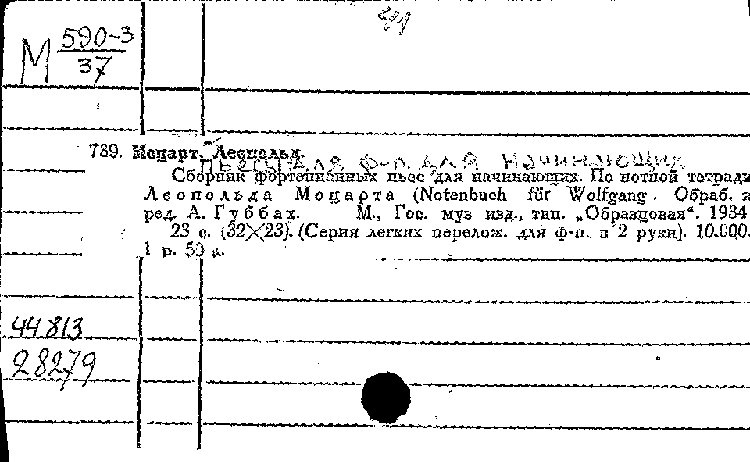 М 590-3
37
789. Моцарт, Леопольд.
Пьесы для ф-п. для начинающих
Сборник фортепианных пьес для начинающих. По нотной тетради
Леопольда Моцарта (Notenbuch für Wolfgang. Обраб. и
ред. А. Губбах. М., Гос. муз изд., тип. „Образцовая“. 1934
23 с. (32×23). (Серия легких перелож. для ф-п. в 2 руки). 10.000.
1 р. 50 к.
44813
28279